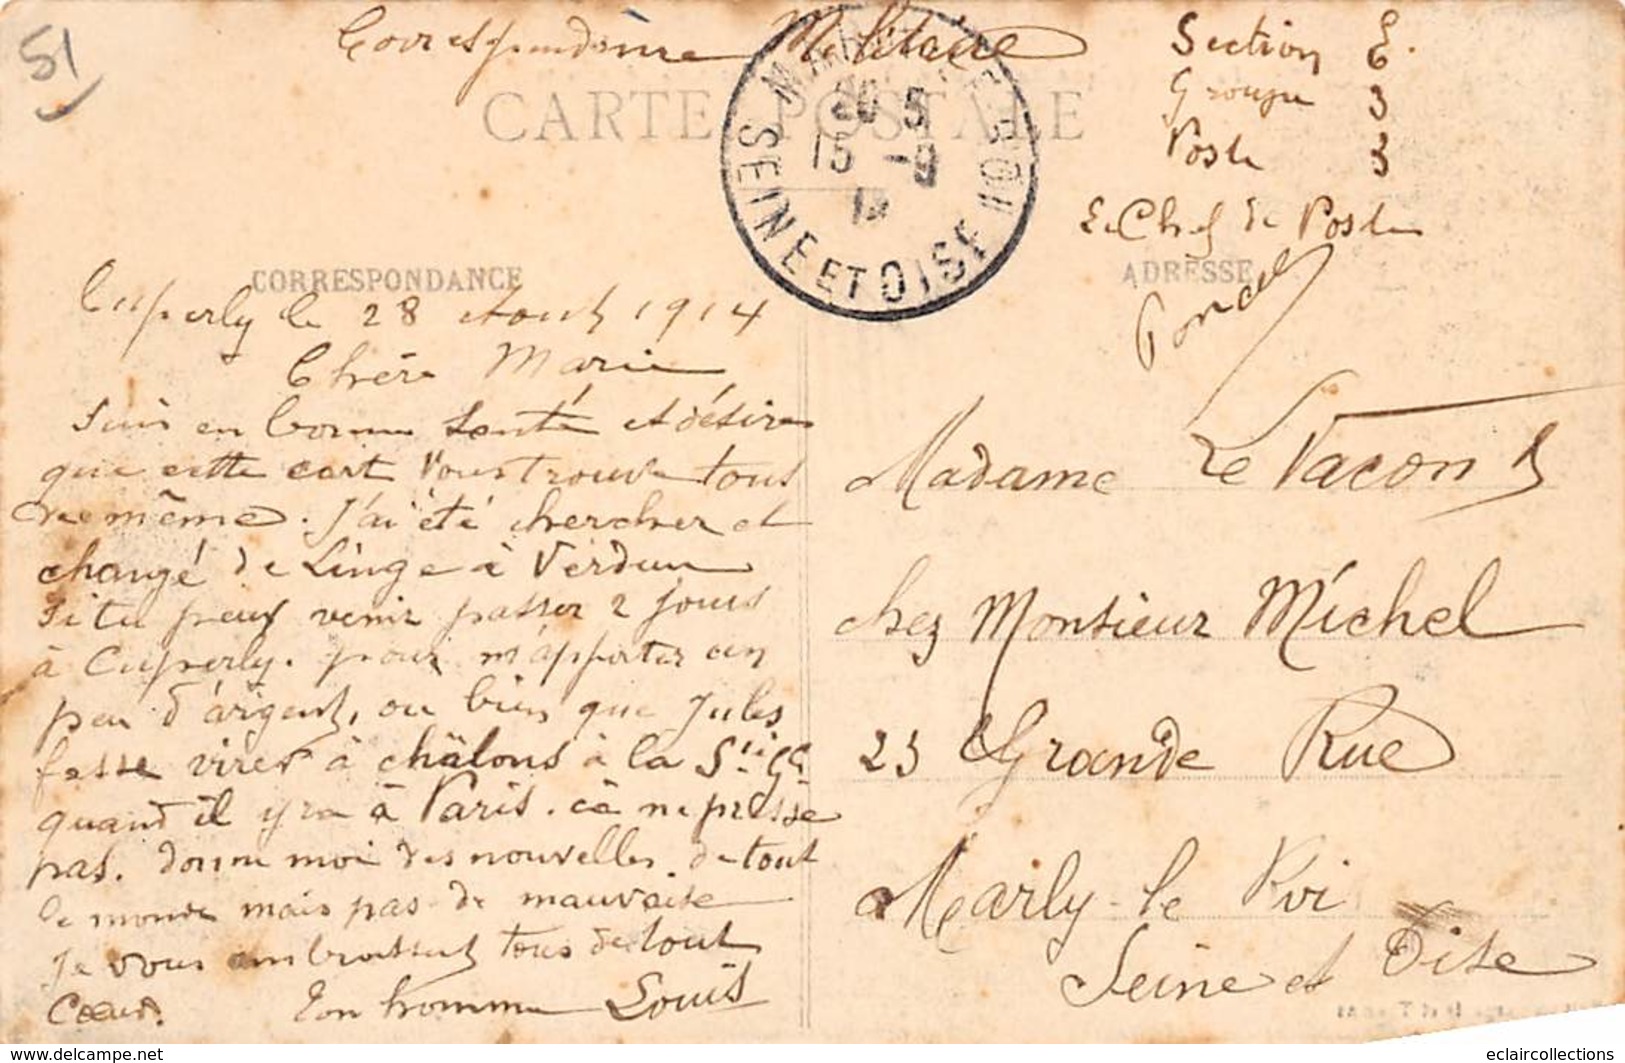 51
Correspondance Militaire
CARTE POSTALE
MARLY-LE-ROI
20 5
15 -9
14
SEINE ET OISE
Section E.
Groupe 3
Poste 3
Le Chef de Poste
CORRESPONDANCE
ADRESSE
Cuperly le 28 Aout 1914
Chère Marie
Suis en bonne Santé et désire
que cette cart Vous trouve tous
de même. J'ai été chercher et
changé de Linge à Verdun
Si tu peux venir passer 2 jours
à Cuperly. pour m'apporter un
peu d'argent, ou bien que Jules
fasse virer à châlons à la Sti Gé
quand il y ra à Paris. cè ne prèsse
pas. donne moi des nouvelles de tout
le monde mais pas de mauvaise
Je vous embrassent tous de tout
Cœur. Ton homme Louis
Madame Le Vacon
chez Monsieur Michel
23 Grande Rue
à Marly-le Roi
Seine et Oise
eclaircollections